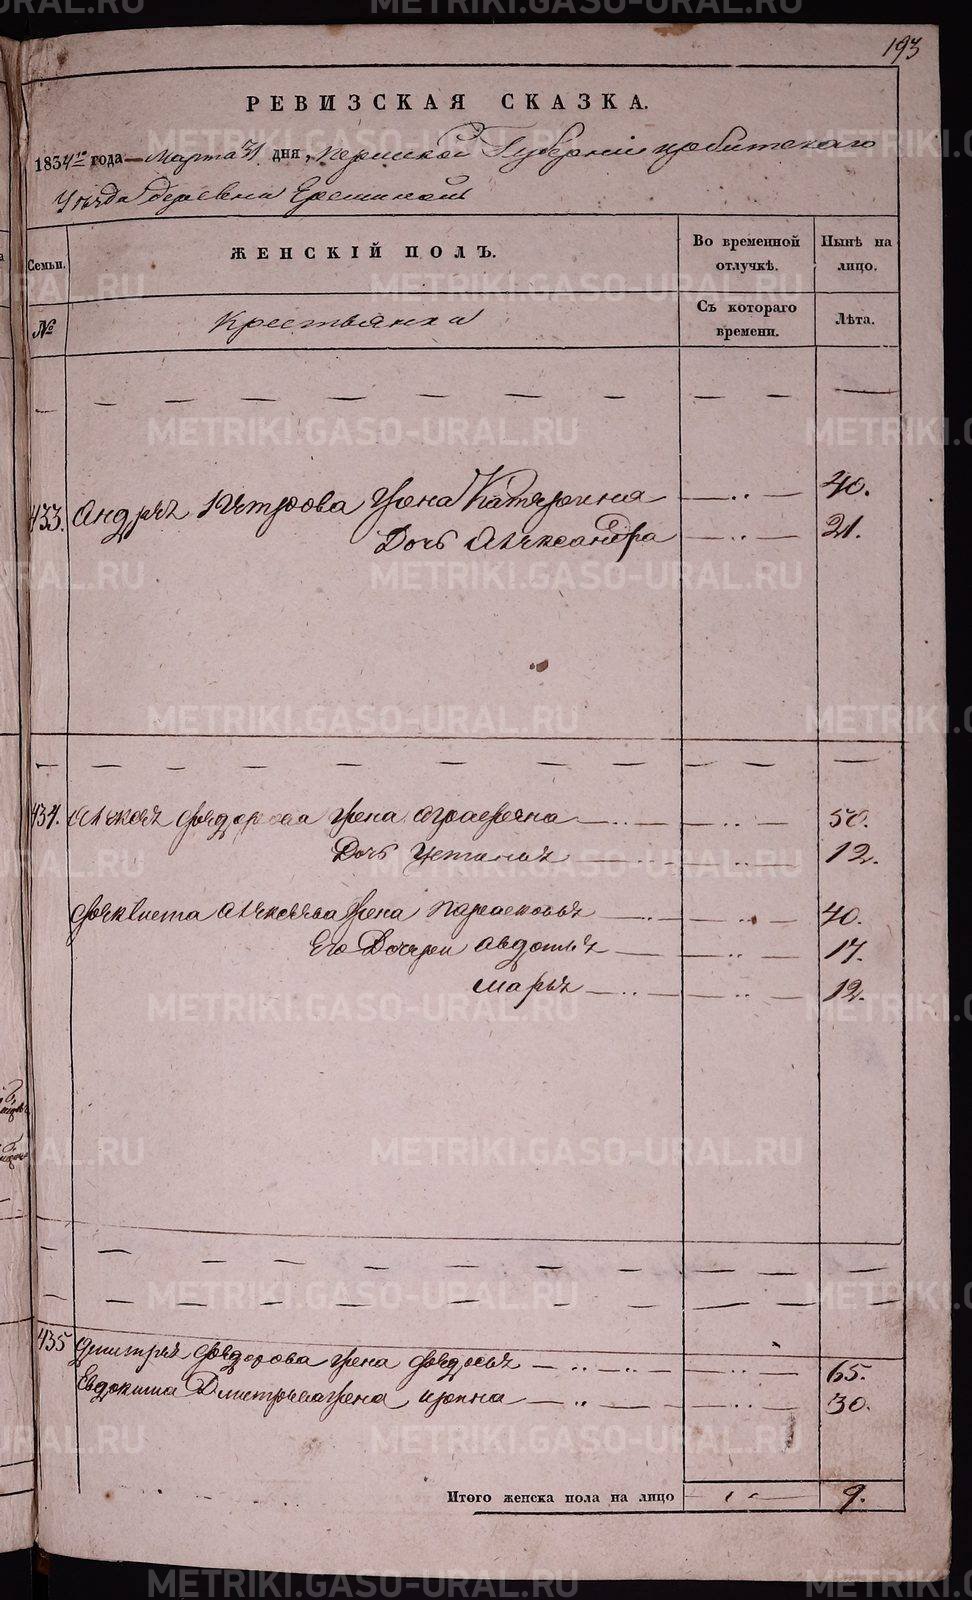 193
РЕВИЗСКАЯ СКАЗКА.
1834го года Марта 31 дня, Пермской Губернии Ирбитскаго
Уезда деревни
Семьи. ЖЕНСКІЙ ПОЛЪ. Во временной отлучкѣ. Нынѣ на лицо.
№ Крестьянка Съ котораго времени. Лѣта.
433. Андрея Петрова жена Катерина 40.
Дочь Александра 21.
434. Алексея Федорова жена Аграфена 50.
Дочь Устинья 12.
Феклиста Алексеева жена Парасковья 40.
Его Дочери Авдотья 17.
Марья 12.
435 Дмитрея Федорова жена Федосья 65.
Евдокима Дмитриева жена Ирина 30.
Итого женска пола на лицо 9.
METRIKI.GASO-URAL.RU